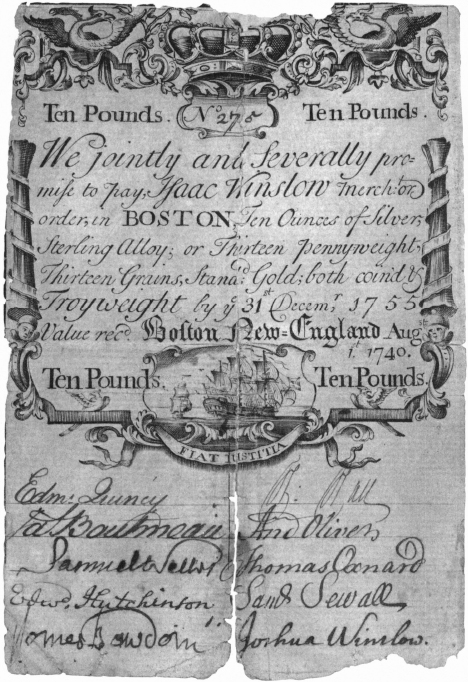 Ten Pounds. No. 275 Ten Pounds.
We jointly and Severally pro-
mise to pay, Isaac Winslow Mercht. or
order, in BOSTON, Ten Ounces of Silver,
Sterling Alloy; or Thirteen pennyweight,
Thirteen Grains, Stanad. Gold; both coin'd &
Troyweight by ye. 31st Decemr. 1755
Value recd. Boston New=England Augst.
1st. 1740.
Ten Pounds. Ten Pounds.
FIAT IUSTITIA
Edm. Quincy
Jas. Boutineau And Oliver
Samuel Thomas Oxnard
Edwd. Hutchinson Saml Sewall
James Bowdoin Joshua Winslow.